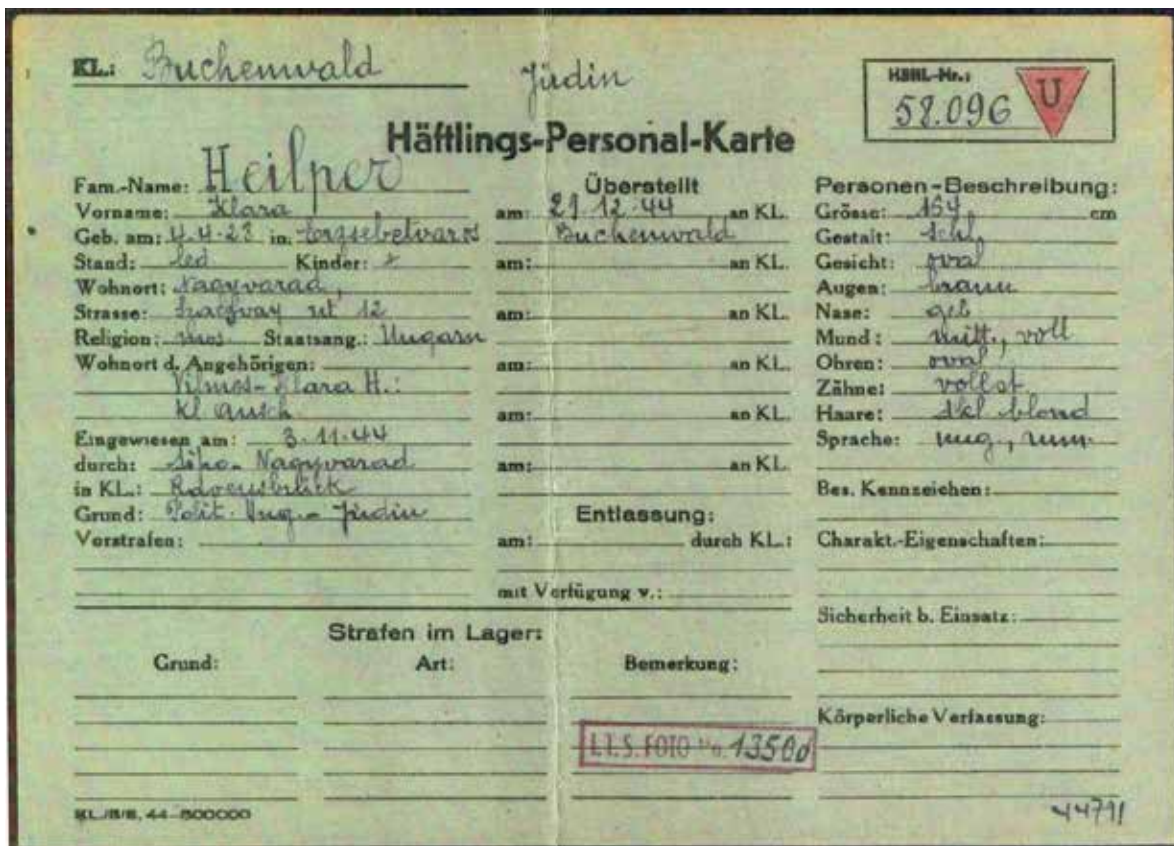 KL.: Buchenwald
Jüdin
Häftl.-Nr.:
58.096
U
Häftlings-Personal-Karte
Fam.-Name: Heilper
Vorname: Klara
Geb. am: 4.4.23 in:
Stand: led Kinder:
Wohnort: Nagyvarad,
Strasse: ut 12
Religion: mos. Staatsang.: Ungarn
Wohnort d. Angehörigen:
Vilmos-Klara H.:
Kl Ausch.
Eingewiesen am: 3.11.44
durch: Sipo- Nagyvarad
in KL.: Ravensbrück
Grund: Polit. Ung.- Jüdin
Vorstrafen:
Überstellt
am: 21.12.44 an KL.
Buchenwald
am: an KL.
am: an KL.
am: an KL.
am: an KL.
am: an KL.
Entlassung:
am: durch KL.:
mit Verfügung v.:
Personen-Beschreibung:
Grösse: 154 cm
Gestalt: schl.
Gesicht: oval
Augen: braun
Nase: geb
Mund: mitt., voll
Ohren: oval
Zähne: vollst.
Haare: dkl blond
Sprache: ung., rum.
Bes. Kennzeichen:
Charakt.-Eigenschaften:
Sicherheit b. Einsatz:
Körperliche Verfassung:
Strafen im Lager:
Grund: Art: Bemerkung:
I.T.S. FOTO No.
KL./5/B. 44-500000